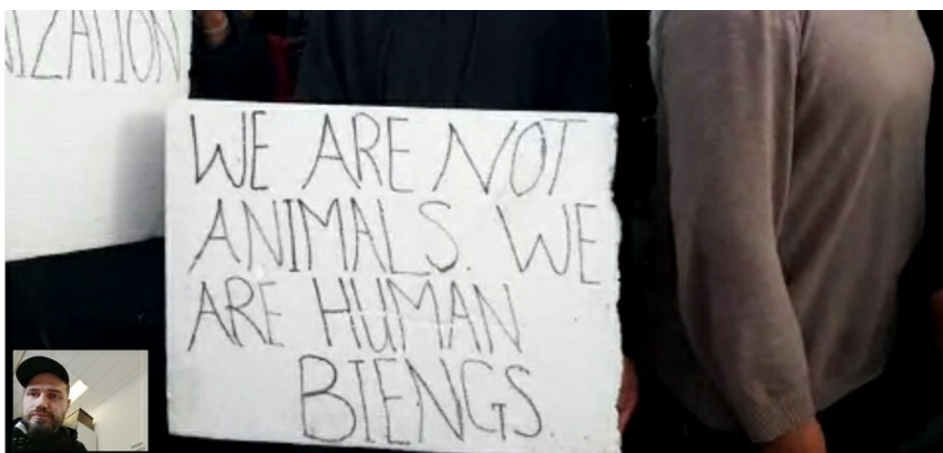 NIZATION
WE ARE NOT
ANIMALS. WE
ARE HUMAN
BIENGS.